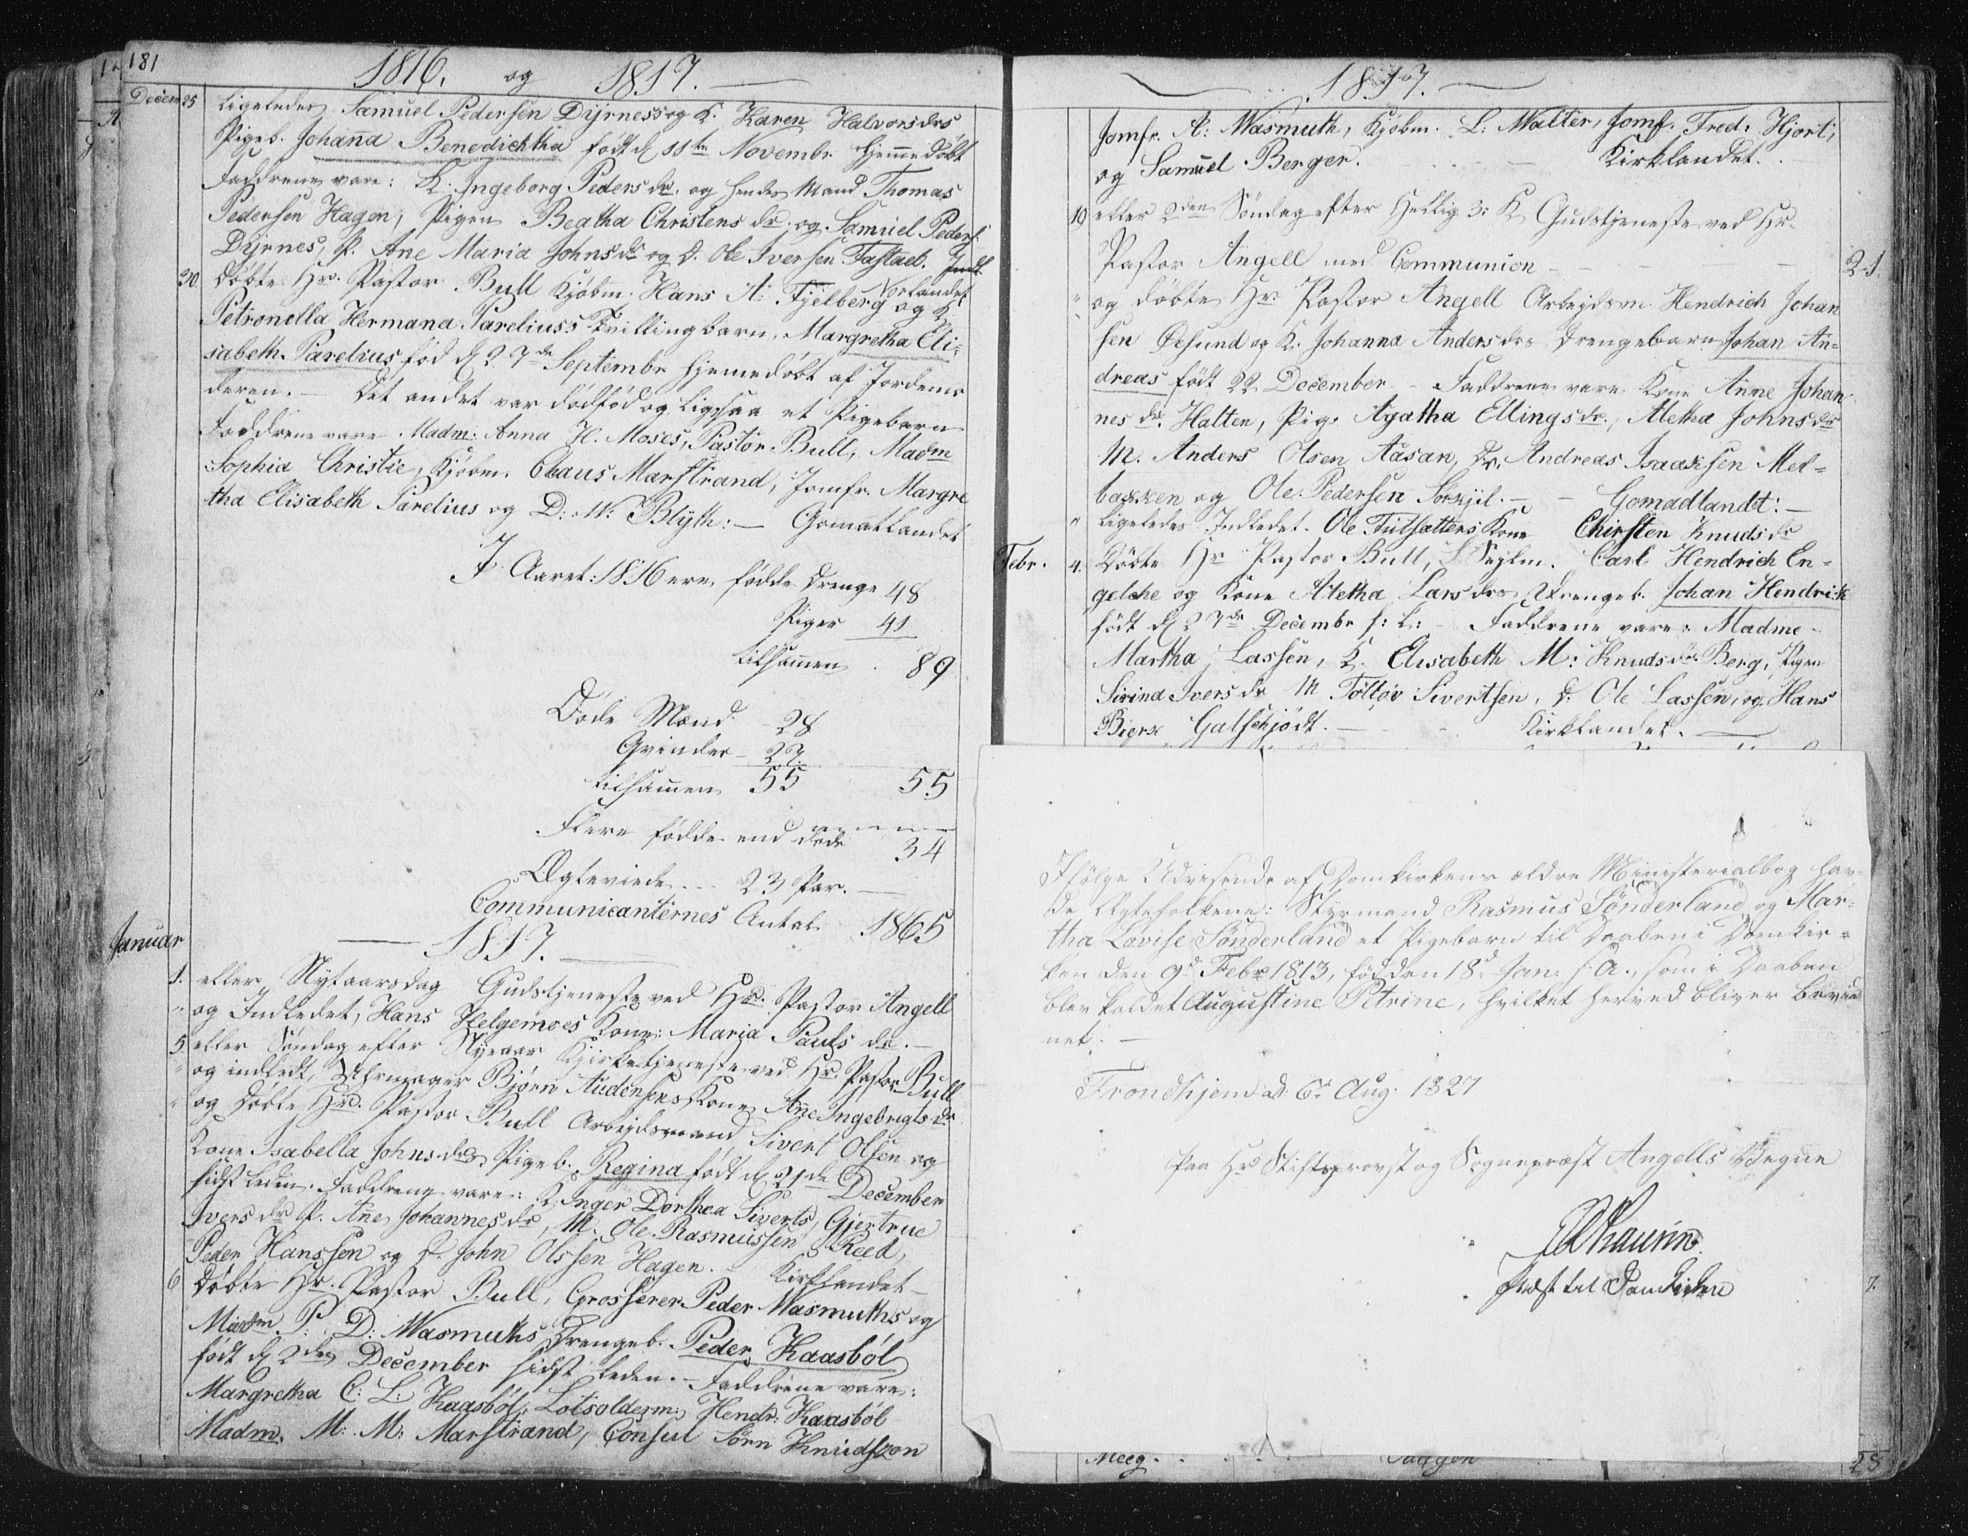 181
1816. og 1817.
Decem 25 ligeledes Samuel Pedersen Dyrnes og K. Karen Halvorsdrs
Pigeb. Johanna Benedichtha født d 11te Novembr. Hjemmedøbt
Faddrene vare: K. Ingeborg Pedersdr. og hendes Mand Thomas
Pedersen Hagen, Pigen Beatha Christensdr. og Samuel Peders.
Dyrnes, P. Ane Maria Johnsdr og D. Ole Iversen Fastaeb. Indl.
Norlandet
30. Døbte Hr. Pastor Bull Kjøbm. Hans A: Fjelberg og K.
Petronella Hermana Pareliuss Tvillingbarn, Margretha Eli-
sabeth Parelius fød d 27de Septembr hjemedøbt af Jordemo
deren. — Det andet var dødfød og ligesaa et Pigebarn
Faddrene vare Madm: Anna H. Moses, Pastor Bull, Madm
Sophia Christie, Kjøbm. Claus Marstrand, Jomfr. Margre
tha Elisabeth Parelius og D: W. Blyth: — Gomatlandet
I Aaret: 1816 ere fødde Drenge 48
Piger 41
tilsamen . 89
Døde Mænd 28
Qvinder 27
tilsammen 55 55
Flere fødde end døde 34
Ægteviede 23 Par. —
Communicanternes Antal 1865
— 1817. —
Januar
1. eller Nytaarsdag Gudstjeneste ved Hr. Pastor Angell
" og Indledet, Hans Helgemoes Kone: Maria Pauls dr. —
5 eller Søndag efter Nyeaar Kirketjeneste ved Hr. Pastor Bull
" og indledt, Uhrmager Bjørn Audensens Kone Ane Ingebrigtsdr.
" og Døbte Hr. Pastor Bull Arbeydsmand Sivert Olsen og
Kone Isabella Johnsdrs Pigeb. Regina født d 21de December
sidst leden. Faddrene vare: K. Inger Dorthea Siverts, Gjertrue
Iversdr P. Ane Johannesdr, M. Ole Rasmussen Reed,
Peder Hanssen og D. John Olssen Hagen. — Kirklandet —
6 Døbte Hr. Pastor Bull, Grosserer Peder Wasmuths og
Madm P: D: Wasmuths Drengeb. Peder Kaasbøl
født d 2den December sidst leden. — Faddrene vare:
Margretha C: L: Kaasbøl, Lotsolderm: Hendr: Kaasbøl
Madm. M: M: Marstrand, Consul Sörn Knudtzon
1817.
Jomfr. A: Wasmuth, Kjøbm. L: Walter, Jomf. Fred: Hjort,
og Samuel Berger. — Kirklandet.
19 eller 2den Søndag efter Hellig 3: K Gudstjeneste ved Hr.
Pastor Angell med Communion — 21.
" og døbte Hr: Pastor Angell Arbeydsm: Hendrich Johan
sen Øesund og K. Johanna Andersdrs Drengebarn Johan An=
dreas født 22 December — Faddrene vare Kone Anne Johan
nesdr. Halten, Pig. Agatha Ellingsdr., Aletha Johnsdr
M. Anders Olsen Aasan, Dr. Andreas Isaaksen Mel=
bakken og Ole Pedersen — Gomadlandt: —
" ligeledes Indledet. Ole Tutsatters Kone Chirsten Knudsdr
Febr. 4. Døbte Hr Pastor Bull, Carl Hendrich En=
gelche og Kone Aletha Larsdrs Drengeb. Johan Hendrik
født d 27de Decembr s: l: — Faddrene vare: Madme
Martha Lassen, K. Elisabeth M: Knudsdr Berg, Pigen
Sirina Iversdr M Tolløv Sivertsen, D. Ole Lassen, og Hans
Bierx Galschjødt. — Kirklandet. —
Ifølge Udvisende af Domkirkens ældre Ministerialbog hav-
de Ægtefolkene: Styrmand Rasmus Sönderland og Mar-
tha Lovise Sönderland et Pigebarn til Daaben i Domkir=
ken den 9d Febr 1813, fød den 18d Jan: s. A., som i Daaben
blev kaldet Augustine Petrine, hvilket herved bliver bevid
net. —
Trondhjem d. 6te Aug. 1827
paa Hr Stiftsprovst og Sognepræst Angells Vegne
Præst til Domkirken
7.
Meeg.
28